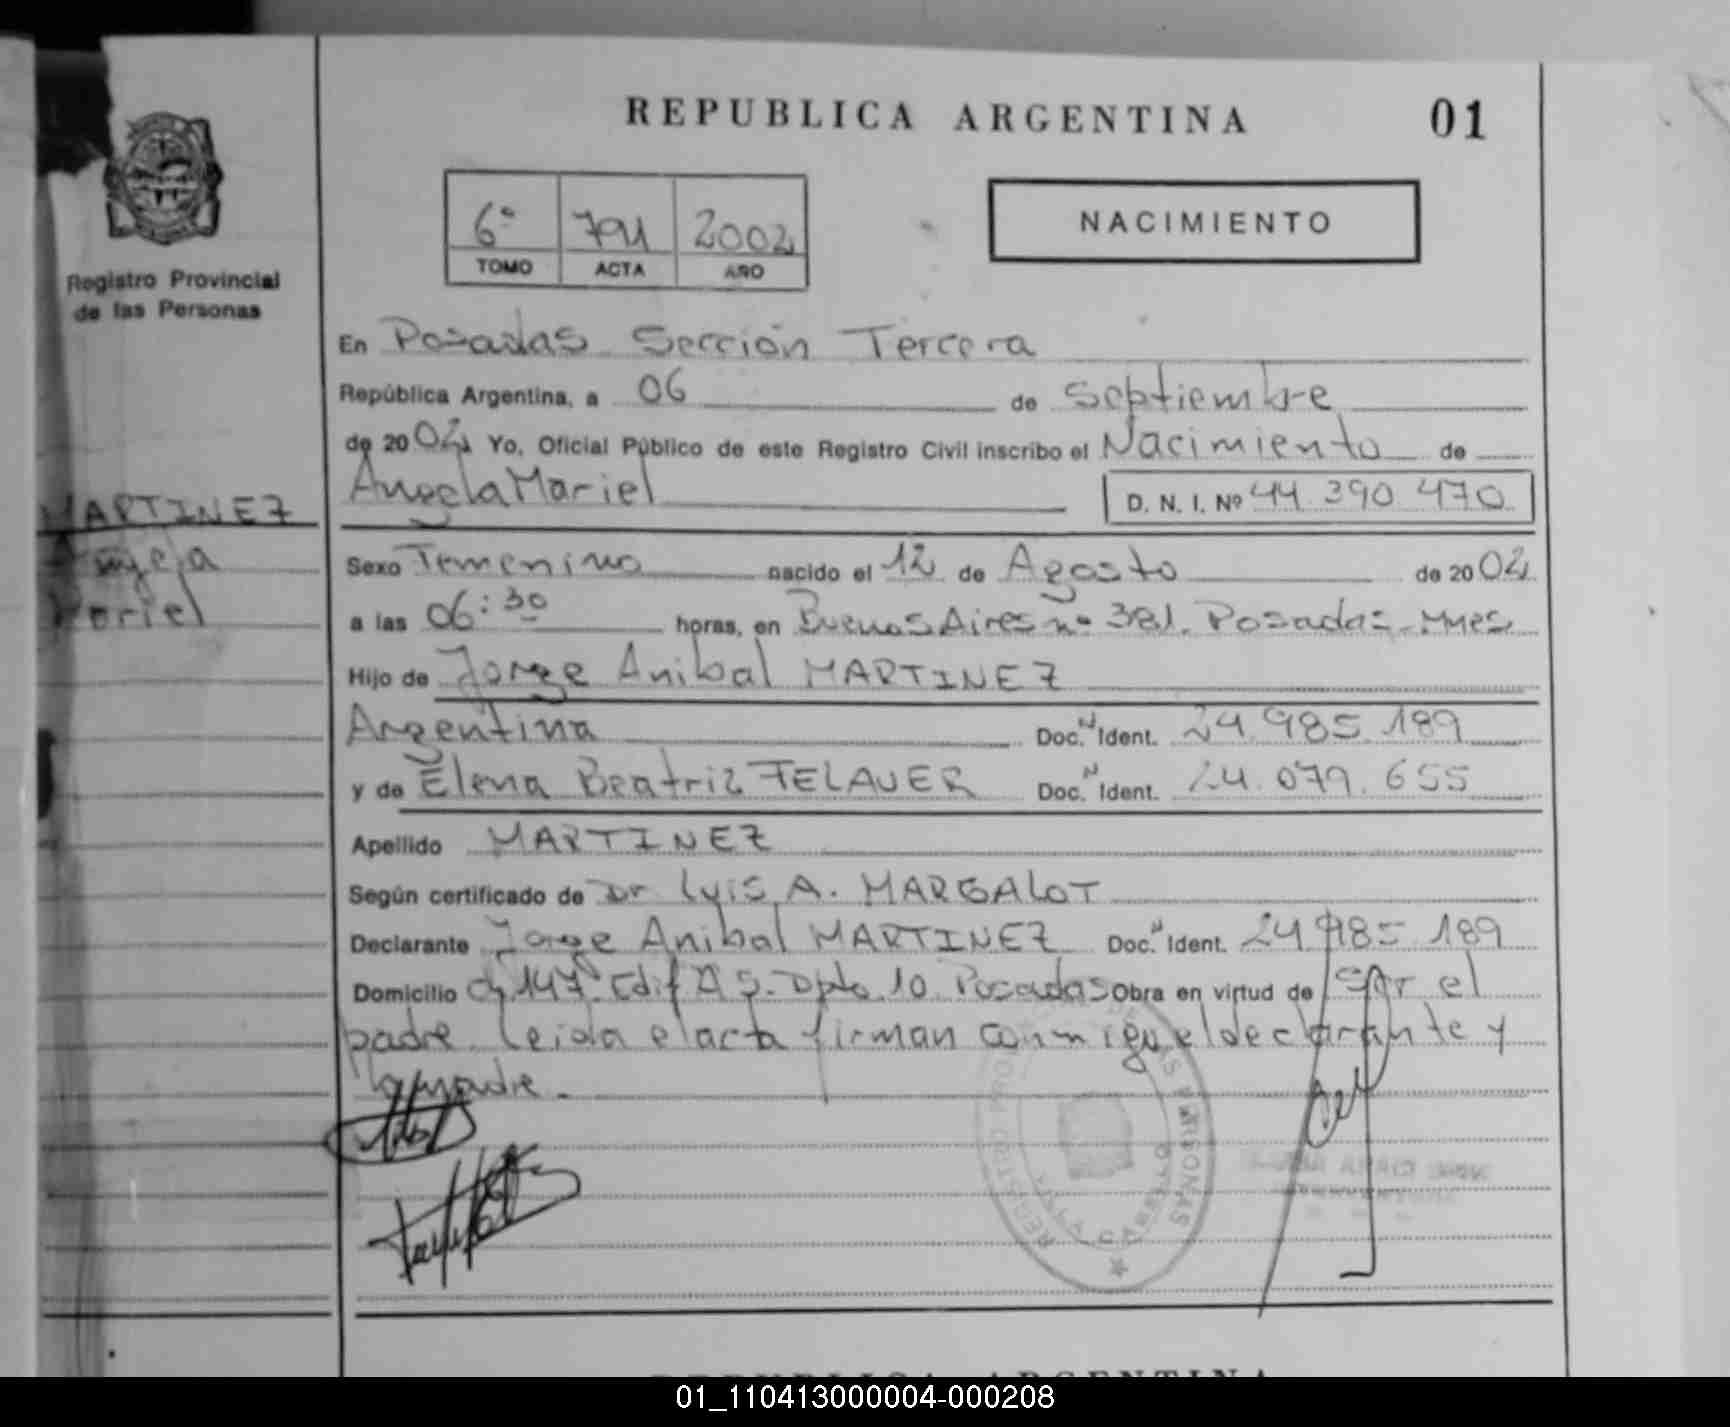 REPUBLICA ARGENTINA
01
6º 791 2002
TOMO ACTA AÑO
NACIMIENTO
Registro Provincial
de las Personas
En Posadas Sección Tercera
República Argentina, a 06 de septiembre
de 2002 Yo, Oficial Público de este Registro Civil inscribo el Nacimiento de
Angela Mariel D. N. I. Nº 44.390.470
MARTINEZ
Angela
Mariel
Sexo Femenino nacido el 12 de Agosto de 2002
a las 06:30 horas, en Buenos Aires nº 381. Posadas - Mnes
Hijo de Jorge Anibal MARTINEZ
Argentina Doc. N Ident. 24.985.189
y de Elena Beatriz FELAUER Doc. N Ident. 24.079.655
Apellido MARTINEZ
Según certificado de Dr Luis A. MARGALOT
Declarante Jorge Anibal MARTINEZ Doc. N Ident. 24.985.189
Domicilio Ch 147. Edif A 5. Dpto 10 Posadas Obra en virtud de ser el
padre. Leida el acta firman conmigo el declarante y
la madre.
REGISTRO PROV DE LAS PERSONAS
VILLA CABELLO
REPUBLICA ARGENTINA
01_110413000004-000208